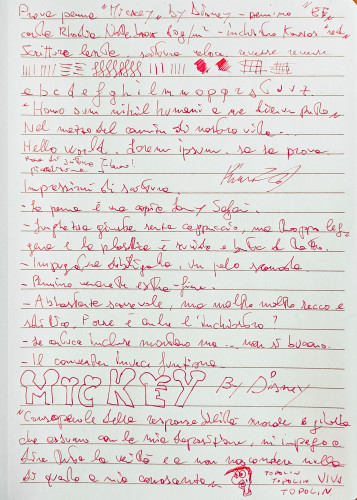 Prova penna "Mickey" by Disney - pennino "EF"
carta Rhodia 80g/m² - inchiostro Kaweco "red"
Scrittura lenta, scrittura veloce. reverse reverse
a b c d e f g h i l m n o p q r s t u v z.
"Homo sum nihil humani a me alienum puto"
Nel mezzo del cammin di nostra vita...
Hello world. Lorem ipsum. sa sa prova
prova di scrittura
Impressioni di scrittura.
- La penna è una copia Lamy Safari.
- Lunghezza giusta senza cappuccio, ma troppo leg-
gera e la plastica è ruvida e brutta al tatto.
- Impugnatura obbligata, un pelo scomoda
- Pennino veramente extra-fine.
- Abbastanza scorrevole, ma molto molto secco e
. Forse è anche l'inchiostro?
- Le cartucce incluse montano ma... non si bucano.
- Il converter invece funziona
MICKEY By Disney
"Consapevole della responsabilità morale e giuridica
che assumo con la mia deposizione, mi impegno a
dire tutta la verità e a non nascondere nulla
di quanto a mia conoscenza."
VIVA
TOPOLIN
TOPOLIN
TOPOLIN